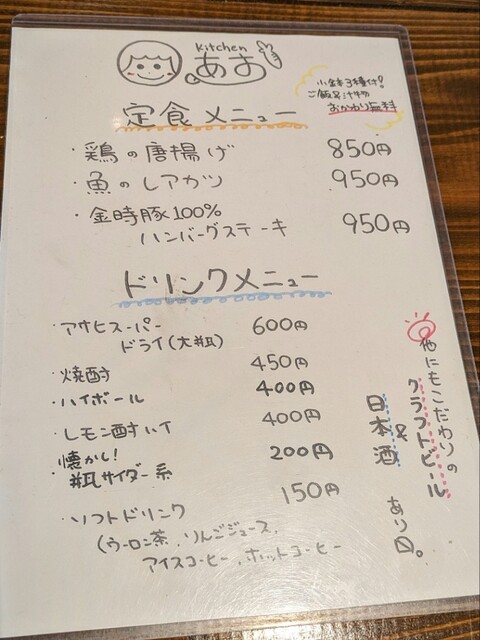 Kitchen
あお
小鉢3種付!
ご飯・汁物
おかわり無料
定食メニュー
・鶏の唐揚げ 850円
・魚のレアカツ 950円
・金時豚100%
ハンバーグステーキ 950円
ドリンクメニュー
・アサヒスーパー
ドライ(大瓶) 600円
・焼酎 450円
・ハイボール 400円
・レモン酎ハイ 400円
・懐かし!
瓶サイダー系 200円
・ソフトドリンク 150円
(ウーロン茶、りんごジュース、
アイスコーヒー、ホットコーヒー
他にもこだわりの
クラフトビール
&
日本酒
あり〼。